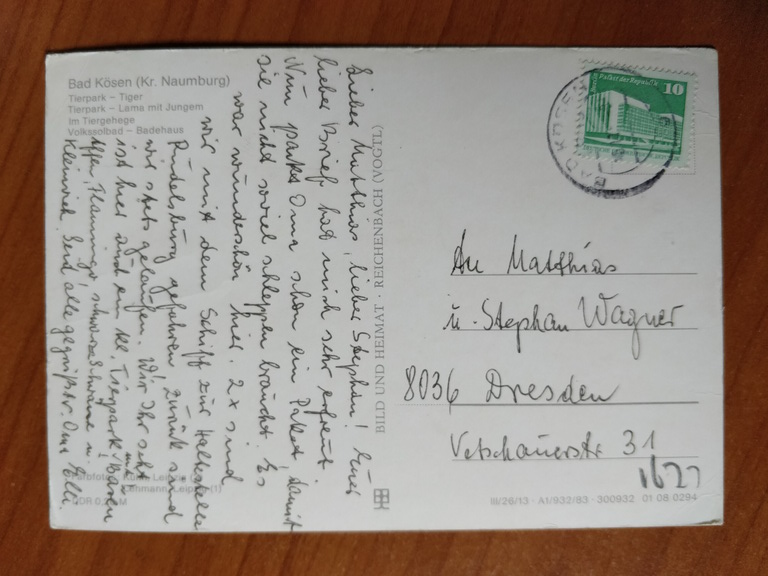 Bad Kösen (Kr. Naumburg)
Tierpark – Tiger
Tierpark – Lama mit Jungem
im Tiergehege
Volkssolbad – Badehaus
Lieber Matthias, lieber Stephan! Euer
lieber Brief hat mich sehr erfreut.
Nun packt Oma schon ein Paket, damit
sie nicht soviel schleppen braucht. Es
war wunderschön hier. 2 x sind
wir mit dem Schiff zur Haltestelle
Rudelsburg gefahren zurück sind
wir stets gelaufen. Wie Ihr seht
ist hier auch ein kl. Tierpark. Bären
Affen, Flamingos, schwarze Schwäne u.
Kleinvieh. Seid alle gegrüßt v. Oma Elli.
BILD UND HEIMAT · REICHENBACH (VOGTL)
Palast der Republik
10
BAD KÖSEN
An Matthias
u. Stephan Wagner
8036 Dresden
Vetschauerstr. 31
1627
Farbfotos:
Lehmann, Leipzig (1)
DDR
III/26/13 · A1/932/83 · 300932 01 08 0294